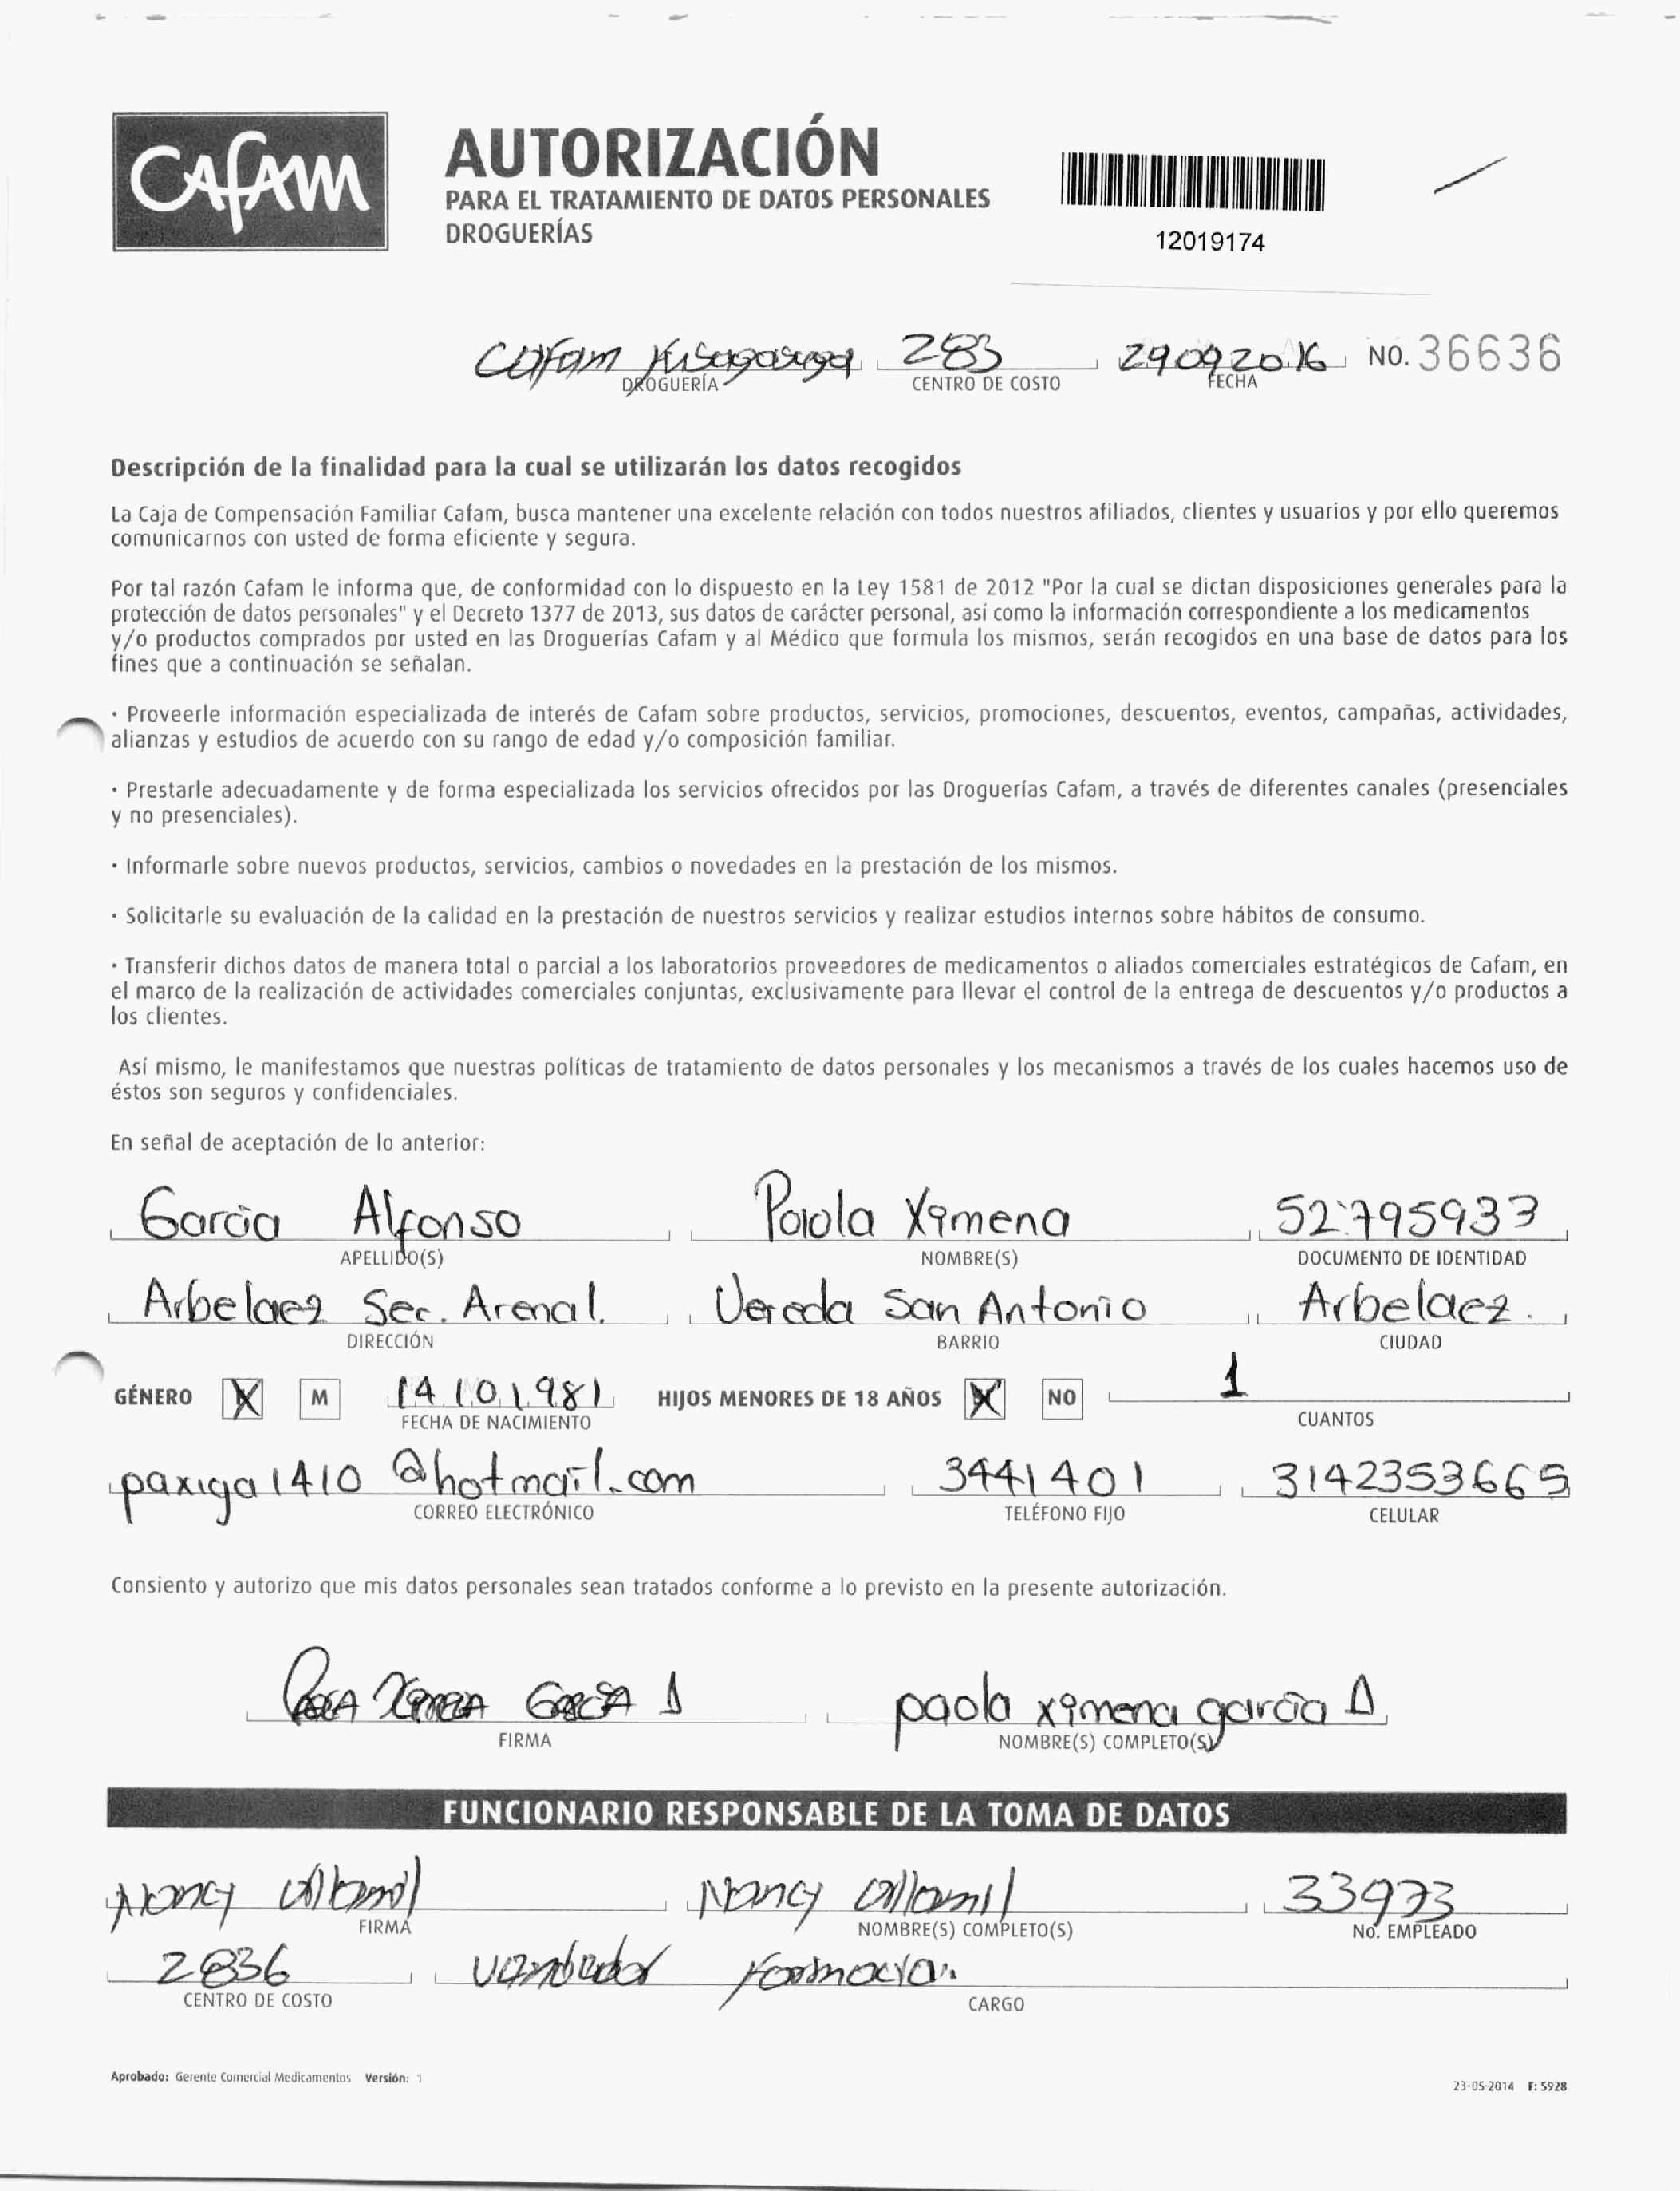 CAFAM
AUTORIZACIÓN
PARA EL TRATAMIENTO DE DATOS PERSONALES
DROGUERÍAS
12019174
Cafam 283 29092016 NO. 36636
DROGUERÍA CENTRO DE COSTO FECHA
Descripción de la finalidad para la cual se utilizarán los datos recogidos
La Caja de Compensación Familiar Cafam, busca mantener una excelente relación con todos nuestros afiliados, clientes y usuarios y por ello queremos
comunicarnos con usted de forma eficiente y segura.
Por tal razón Cafam le informa que, de conformidad con lo dispuesto en la Ley 1581 de 2012 "Por la cual se dictan disposiciones generales para la
protección de datos personales" y el Decreto 1377 de 2013, sus datos de carácter personal, así como la información correspondiente a los medicamentos
y/o productos comprados por usted en las Droguerías Cafam y al Médico que formula los mismos, serán recogidos en una base de datos para los
fines que a continuación se señalan.
· Proveerle información especializada de interés de Cafam sobre productos, servicios, promociones, descuentos, eventos, campañas, actividades,
alianzas y estudios de acuerdo con su rango de edad y/o composición familiar.
· Prestarle adecuadamente y de forma especializada los servicios ofrecidos por las Droguerías Cafam, a través de diferentes canales (presenciales
y no presenciales).
· Informarle sobre nuevos productos, servicios, cambios o novedades en la prestación de los mismos.
· Solicitarle su evaluación de la calidad en la prestación de nuestros servicios y realizar estudios internos sobre hábitos de consumo.
· Transferir dichos datos de manera total o parcial a los laboratorios proveedores de medicamentos o aliados comerciales estratégicos de Cafam, en
el marco de la realización de actividades comerciales conjuntas, exclusivamente para llevar el control de la entrega de descuentos y/o productos a
los clientes.
Así mismo, le manifestamos que nuestras políticas de tratamiento de datos personales y los mecanismos a través de los cuales hacemos uso de
éstos son seguros y confidenciales.
En señal de aceptación de lo anterior:
Garcia Alfonso Paola Ximena 52.795933
APELLIDO(S) NOMBRE(S) DOCUMENTO DE IDENTIDAD
Arbelaez Sec. Arenal. Vereda San Antonio Arbelaez.
DIRECCIÓN BARRIO CIUDAD
GÉNERO X M 14101981 HIJOS MENORES DE 18 AÑOS X NO 1
FECHA DE NACIMIENTO CUANTOS
paxiga1410 @hotmail.com 3441401 3142353665
CORREO ELECTRÓNICO TELÉFONO FIJO CELULAR
Consiento y autorizo que mis datos personales sean tratados conforme a lo previsto en la presente autorización.
Paola Ximena Garcia A paola ximena garcia A
FIRMA NOMBRE(S) COMPLETO(S)
FUNCIONARIO RESPONSABLE DE LA TOMA DE DATOS
Nancy Nancy 33973
FIRMA NOMBRE(S) COMPLETO(S) No. EMPLEADO
2836 farmacia.
CENTRO DE COSTO CARGO
Aprobado: Gerente Comercial Medicamentos Versión: 1
23-05-2014 F: 5928